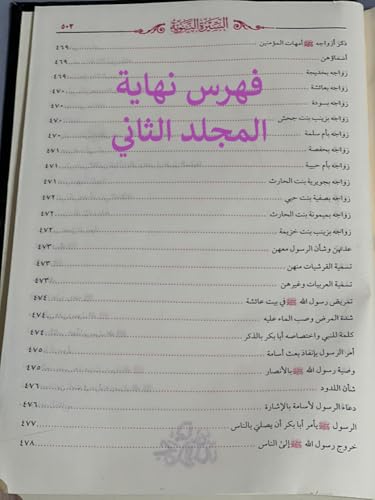 ٥٠٣ السيرة النبوية
ذكر أزواجه ﷺ أمهات المؤمنين ٤٦٩
أسماؤهن ٤٦٩
زواجه بخديجة ٤٦٩
زواجه بعائشة ٤٧٠
زواجه بسودة ٤٧٠
زواجه بزينب بنت جحش ٤٧٠
زواجه بأم سلمة ٤٧٠
زواجه بحفصة ٤٧١
زواجه بأم حبيبة ٤٧١
زواجه بجويرية بنت الحارث ٤٧١
زواجه بصفية بنت حيي ٤٧٢
زواجه بميمونة بنت الحارث ٤٧٢
زواجه بزينب بنت خزيمة ٤٧٢
عدتهن وشأن الرسول معهن ٤٧٣
تسمية القرشيات منهن ٤٧٣
تسمية العربيات وغيرهن ٤٧٣
تمريض رسول الله ﷺ في بيت عائشة ٤٧٤
شدة المرض وصب الماء عليه ٤٧٤
كلمة للنبي واختصاصه أبا بكر بالذكر ٤٧٤
أمر الرسول بإنفاذ بعث أسامة ٤٧٥
وصية رسول الله ﷺ بالأنصار ٤٧٥
شأن اللدود ٤٧٦
دعاء الرسول لأسامة بالإشارة ٤٧٦
الرسول ﷺ يأمر أبا بكر أن يصلي بالناس ٤٧٧
خروج رسول الله ﷺ إلى الناس ٤٧٨
فهرس نهاية
المجلد الثاني